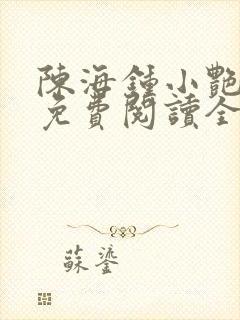 陳海鍾小艷
免費閱讀全
蘇鎏